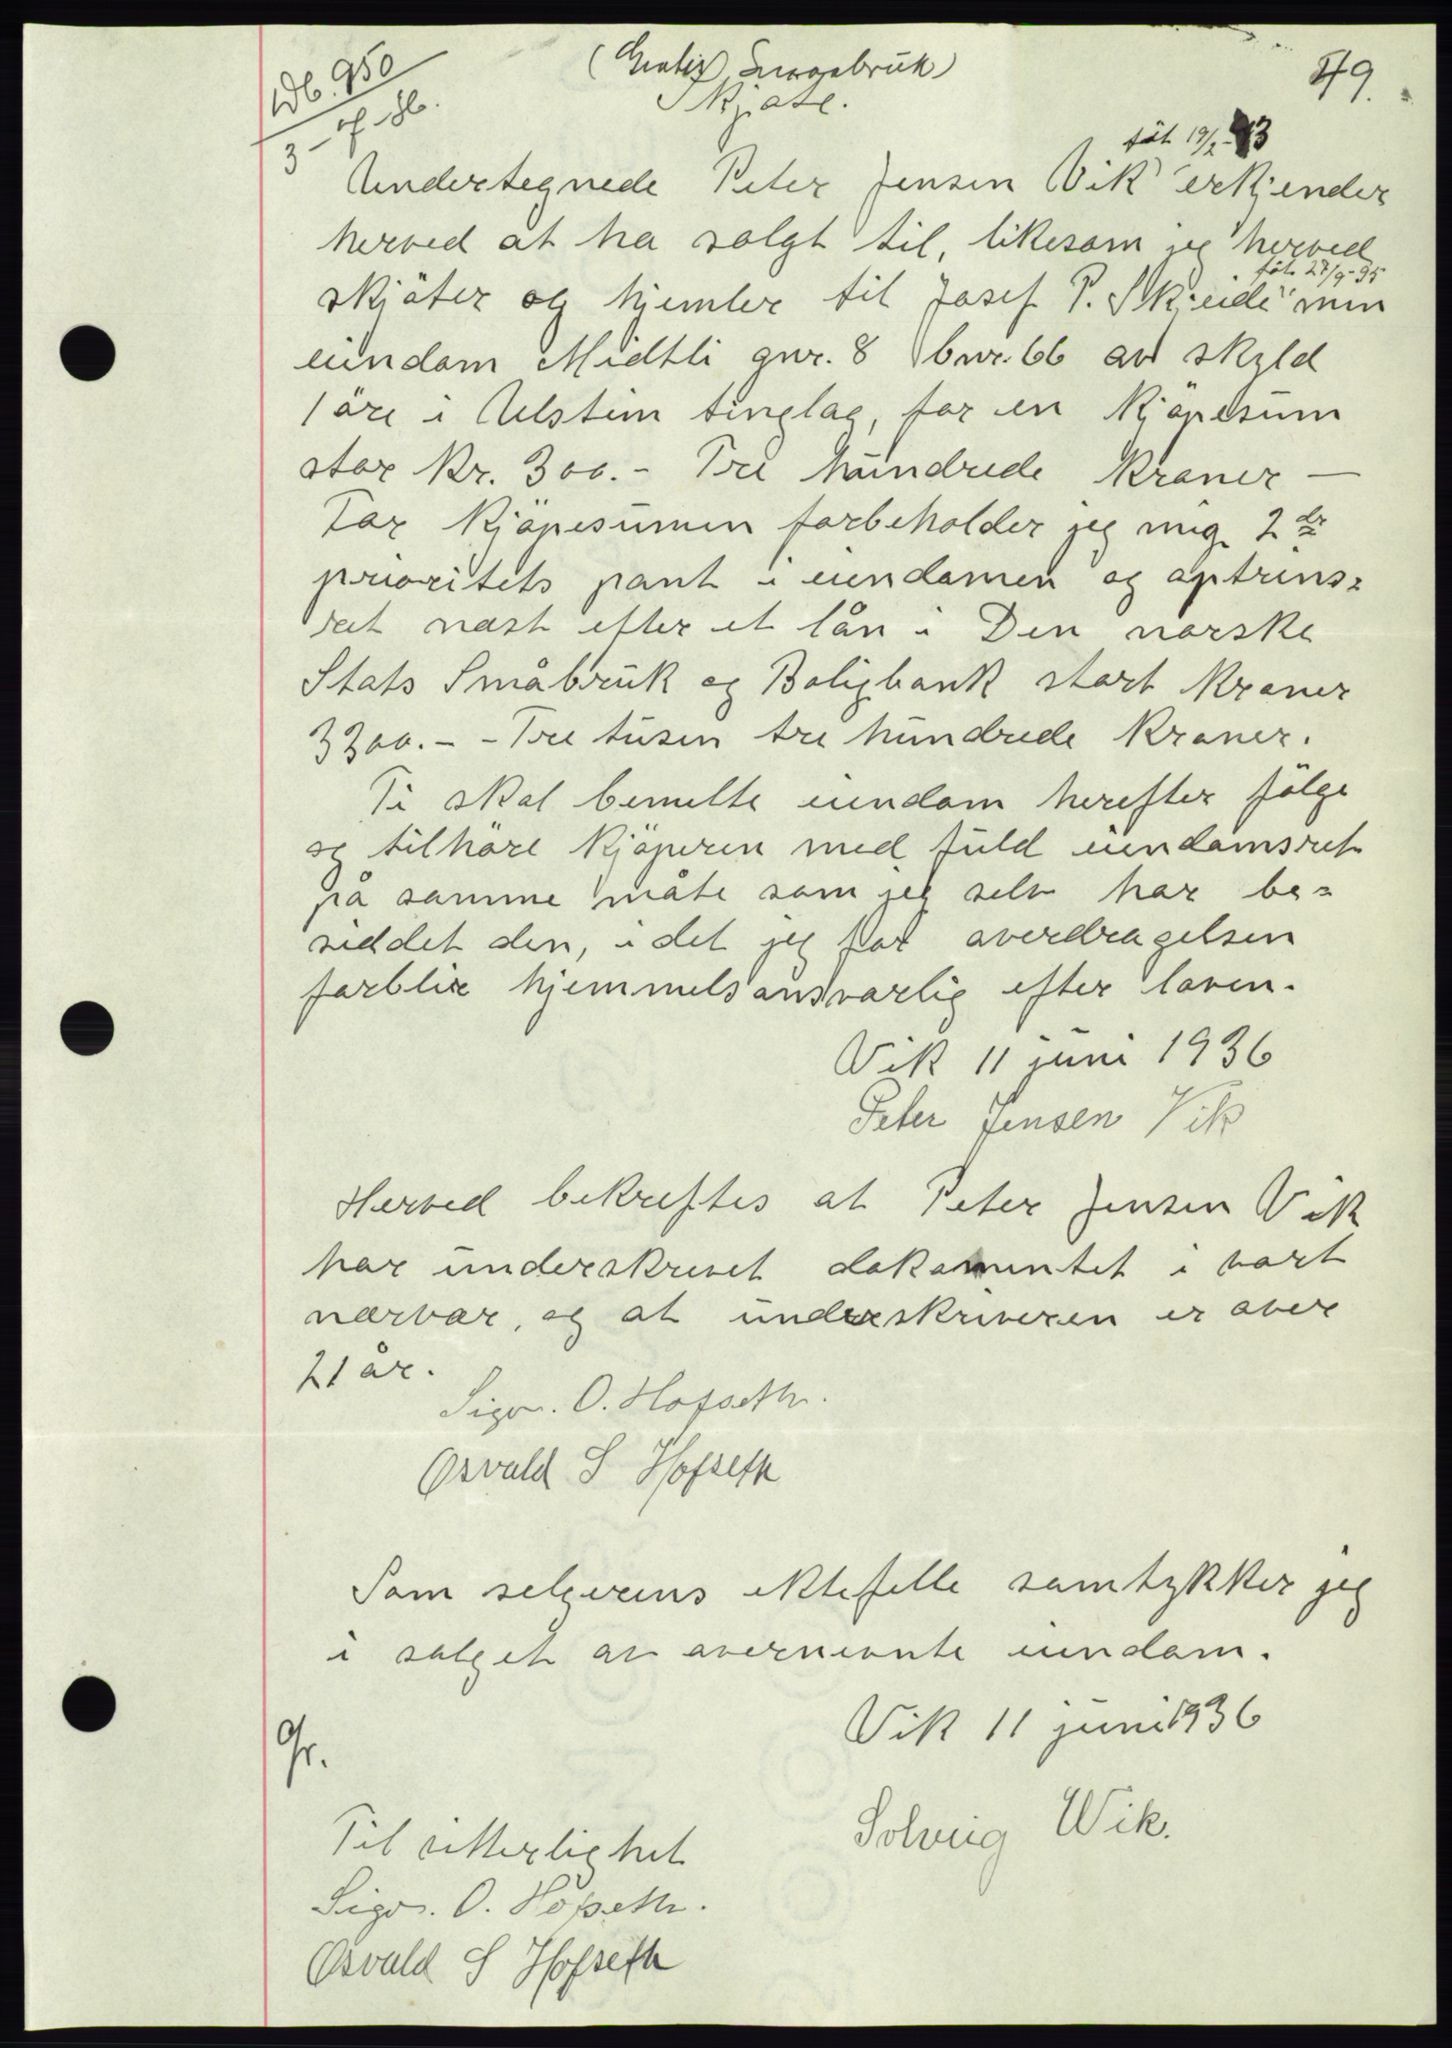 (Gratis, Småbruk)
49.
Db. 950
3-7-36.
Skjøte.
føt 19/2-93
Undertegnede Peter Jensen Vik erkjender
herved at ha solgt til, likesom jeg herved
føt. 27/9-95
skjøter og hjemler til Josef P. Skeide min
eiendom Midtli gnr. 8 bnr. 66 av skyld
1 øre i Ulstein tinglag, for en kjøpesum
stor Kr. 300.- Tre hundrede kroner —
For kjøpesummen forbeholder jeg mig 2 dr
prioritets pant i eiendommen og optrins-
ret næst efter et lån i Den norske
Stats Småbruk og Boligbank stort kroner
3300.- - Tre tusen tre hundrede kroner.
Ti skal bemelte eiendom herefter følge
og tilhøre kjøperen med fuld eiendomsret
på samme måte som jeg selv har be-
siddet den, i det jeg for overdragelsen
forblir hjemmelsansvarlig efter loven.
Vik 11 juni 1936
Peter Jensen Vik
Herved bekreftes at Peter Jensen Vik
har underskrevet dokumentet i vort
nærvær, og at underskriveren er over
21 år.
Sigv. O. Hofseth.
Osvald S Hofseth
Som selgerens ektefelle samtykker jeg
i salget av overnevnte eiendom.
Vik 11 juni 1936
Gr.
Solveig Wik.
Til vitterlighet
Sigv. O. Hofseth.
Osvald S Hofseth